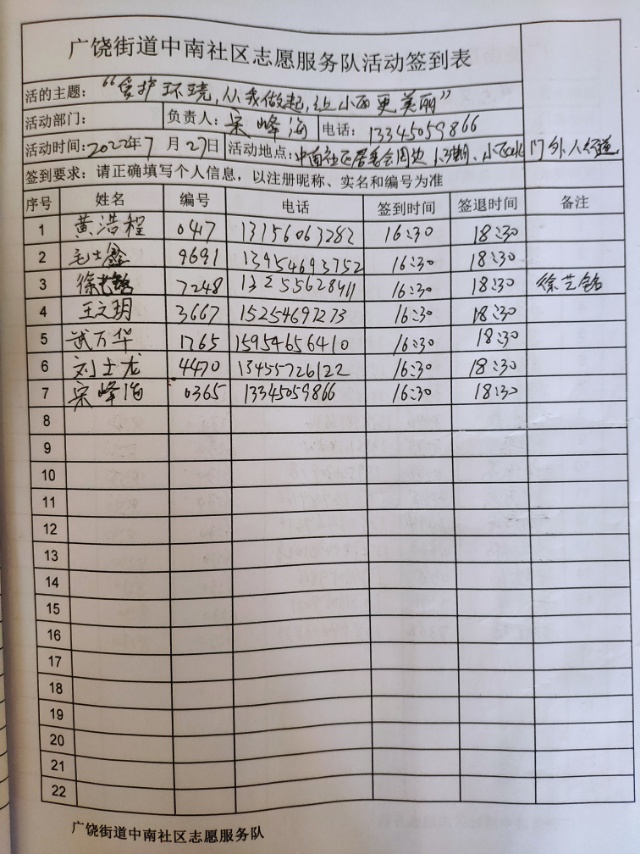 广饶街道中南社区志愿服务队活动签到表
活的主题：“爱护环境，从我做起，让小西更美丽”
活动部门： 负责人：宋峰海 电话：13345059866
活动时间：2022年7月27日 活动地点：中南社区居委会周边 门外人行道
签到要求：请正确填写个人信息，以注册昵称、实名和编号为准
序号 姓名 编号 电话 签到时间 签退时间 备注
1 黄浩程 0417 13156063282 16:30 18:30
2 毛士鑫 9691 13954693752 16:30 18:30
3 徐艺铭 7248 13255628911 16:30 18:30 徐艺铭
4 王文玥 3667 15254697273 16:30 18:30
5 武万华 1765 15954656410 16:30 18:30
6 刘士龙 4470 13455726122 16:30 18:30
7 宋峰海 0365 13345059866 16:30 18:30
8
9
10
11
12
13
14
15
16
17
18
19
20
21
22
广饶街道中南社区志愿服务队